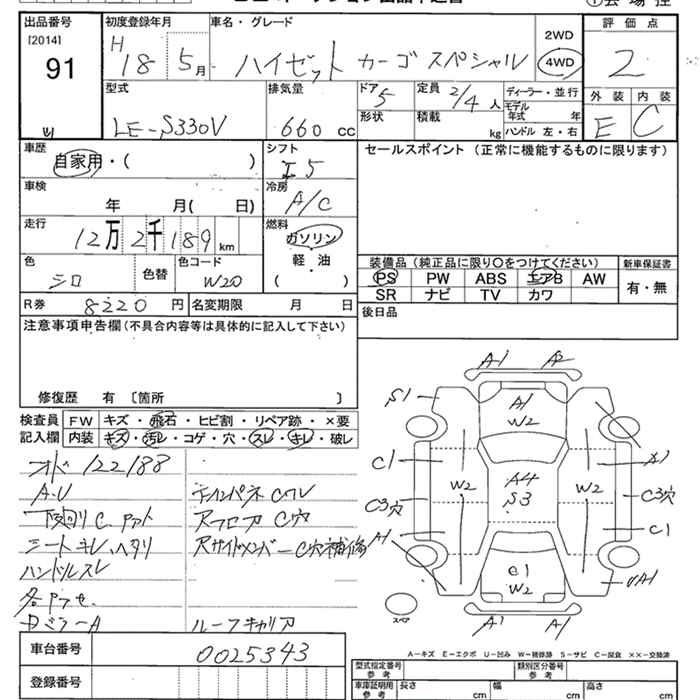 出品番号
[2014]
91
初度登録年月
H 18 5月
車名・グレード
ハイゼット カーゴスペシャル
2WD
4WD
評価点
2
外装 内装
E C
型式
LE-S330V
排気量
660 cc
ドア 5
形状
定員 2/4 人
積載 kg
ディーラー・並行
モデル年式 年
ハンドル 左・右
車歴
自家用・( )
シフト
I5
セールスポイント(正常に機能するものに限ります)
車検
年 月( 日)
冷房
A/C
走行
12万2千189 km
燃料
ガソリン
軽・油
( )
色
シロ
色替
色コード
W20
装備品(純正品に限り○をつけてください)
新車保証書
PS PW ABS エアB AW
SR ナビ TV カワ
有・無
R券 8220 円
名変期限 月 日
後日品
注意事項申告欄(不具合内容等は具体的に記入して下さい)
修復歴 有〔箇所 〕
検査員記入欄
FW キズ・飛石・ヒビ割・リペア跡・×要
内装 キズ・汚レ・コゲ・穴・スレ・キレ・破レ
オド122188
A.U
下廻リC
シートキレ,ヘタリ
ハンドルスレ
Dミラー A
フロア C穴
Rサイドメンバー C穴補修
ルーフキャリア
A1 A2
S1
A1
W2
C1
W2
A4
S3
W2
A1
C3穴
C3穴
A1
C1
C1
W2
A1
A1
A1
スペア
A-キズ E-エクボ U-凹み W-補修跡 S-サビ C-腐食 ××-交換済
車台番号
0025343
登録番号
型式指定番号 参考
類別区分番号 参考
車庫証明用 参考
長さ cm
幅 cm
高さ cm